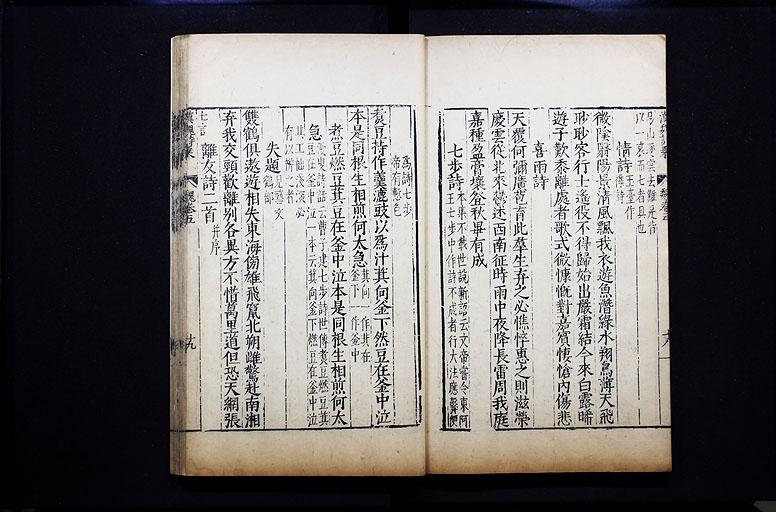 情詩
微陰翳陽景清風飄我衣遊魚潛綠水翔鳥薄天飛
眇眇客行士遙役不得歸始出嚴霜結今來白露晞
遊子歎黍離處者歌式微慷慨對嘉賓悽愴內傷悲
喜雨詩
天覆何彌廣苞育此羣生弃之必憔悴惠之則滋榮
慶雲從北來鬱述西南征時雨中夜降長雷周我庭
嘉種盈膏壤登秋畢有成
七步詩
本集不載世說新語云文帝嘗令東阿
王七步中作詩不成者行大法應聲便
為詩
帝有慙色
煮豆持作羹漉豉以為汁萁向釜下然豆在釜中泣
本是同根生相煎何太急
煮豆燃豆萁豆在釜中泣本是同根生相煎何太
急
失題
雙鶴俱遨遊相失東海傍雄飛竄北朔雌驚赴南湘
弃我交頸歡離別各異方不惜萬里道但恐天網張
七言
離友詩二首
并序
魏卷五
十九